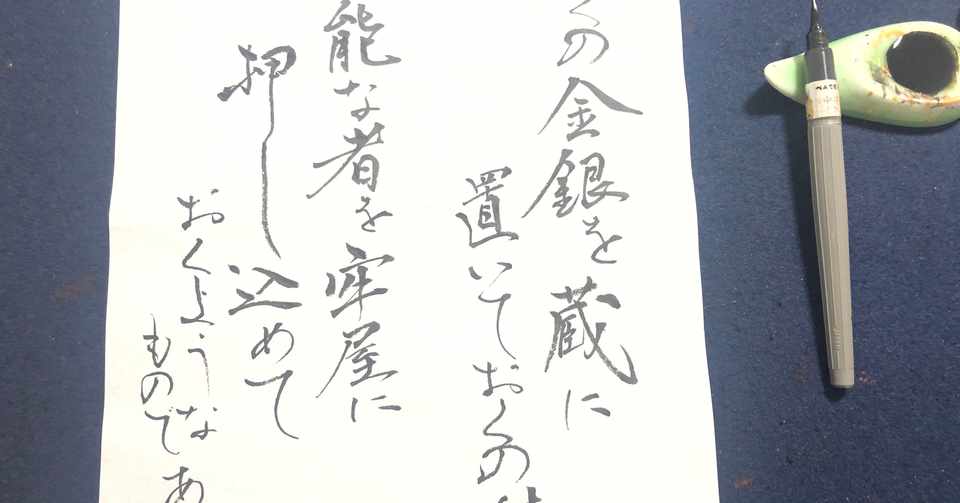 くの金銀を蔵に
置いておくの
能な者を牢屋に
押し込めて
おくような
ものであ
ぺんてる